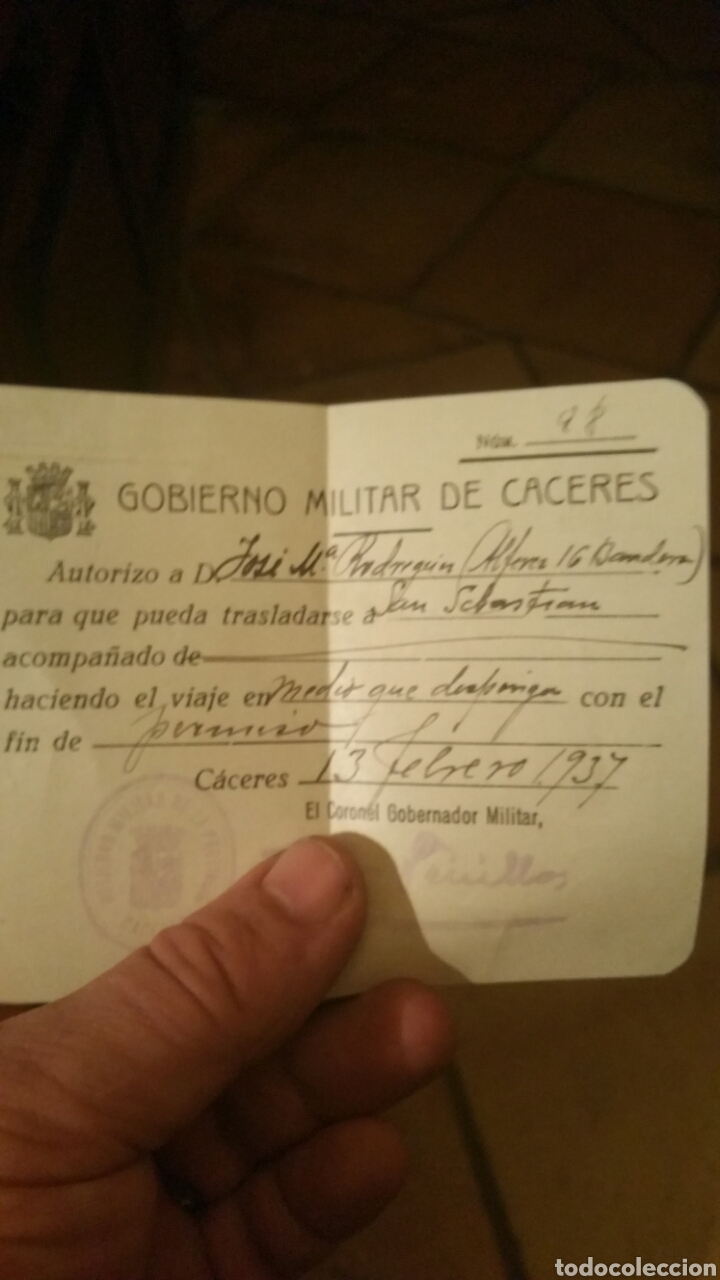 Núm. 98
GOBIERNO MILITAR DE CACERES
Autorizo a D. José Mª Rodriguez (Alferez 16 Bandera)
para que pueda trasladarse a San Sebastian
acompañado de
haciendo el viaje en medio que disponga con el
fin de permiso
Cáceres 13 febrero 1937
El Coronel Gobernador Militar,
todocoleccion